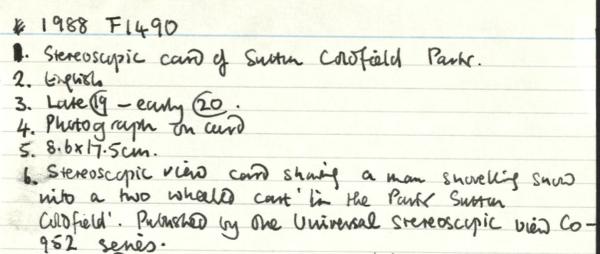 1988 F1490
1. Stereoscopic card of Sutton Coldfield Park.
2. English
3. Late 19 - early 20.
4. Photograph on card
5. 8.6x17.5cm.
6. Stereoscopic view card showing a man shovelling snow
into a two wheeled cart 'in the Park Sutton
Coldfield'. Published by the Universal stereoscopic view Co -
952 series.